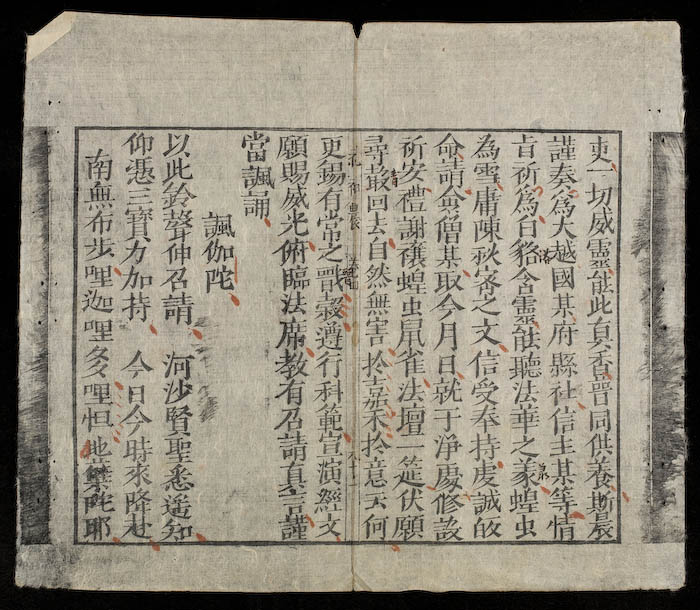 吏一切威靈此真香普同供養斯晨
謹奏為大越國某府縣社信主某等情
旨祈為日貉含靈䏻聽法華之義蝗虫
為庸陳秋審之文信受奉持虔誠故
命請僧某取今月日就于淨處修設
祈安禮謝禳蝗虫鼠雀法壇一筵伏願
尋㝡回去自然無害於嘉禾於意云何
更錫有常之戩穀遵行科範宣演經文
願賜威光俯臨法席教有召請真言謹
當諷誦
諷伽陀
以此鈴聲伸召請 河沙賢聖悉遥知
仰憑三寶力加持 今日今時來降赴
南無布步哩迦哩多哩怛他陀耶